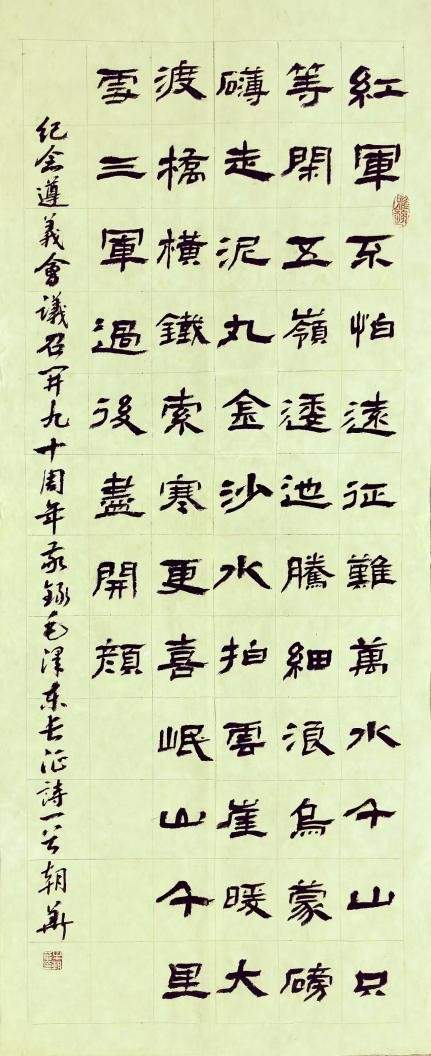 紅軍不怕遠征難萬水千山只
等閑五嶺逶迆騰細浪烏蒙磅
礴走泥丸金沙水拍雲崖暖大
渡橋橫鐵索寒更喜岷山千里
雪三軍過後盡開顏
紀念遵義會議召開九十周年敬錄毛澤東長征詩一首朝華